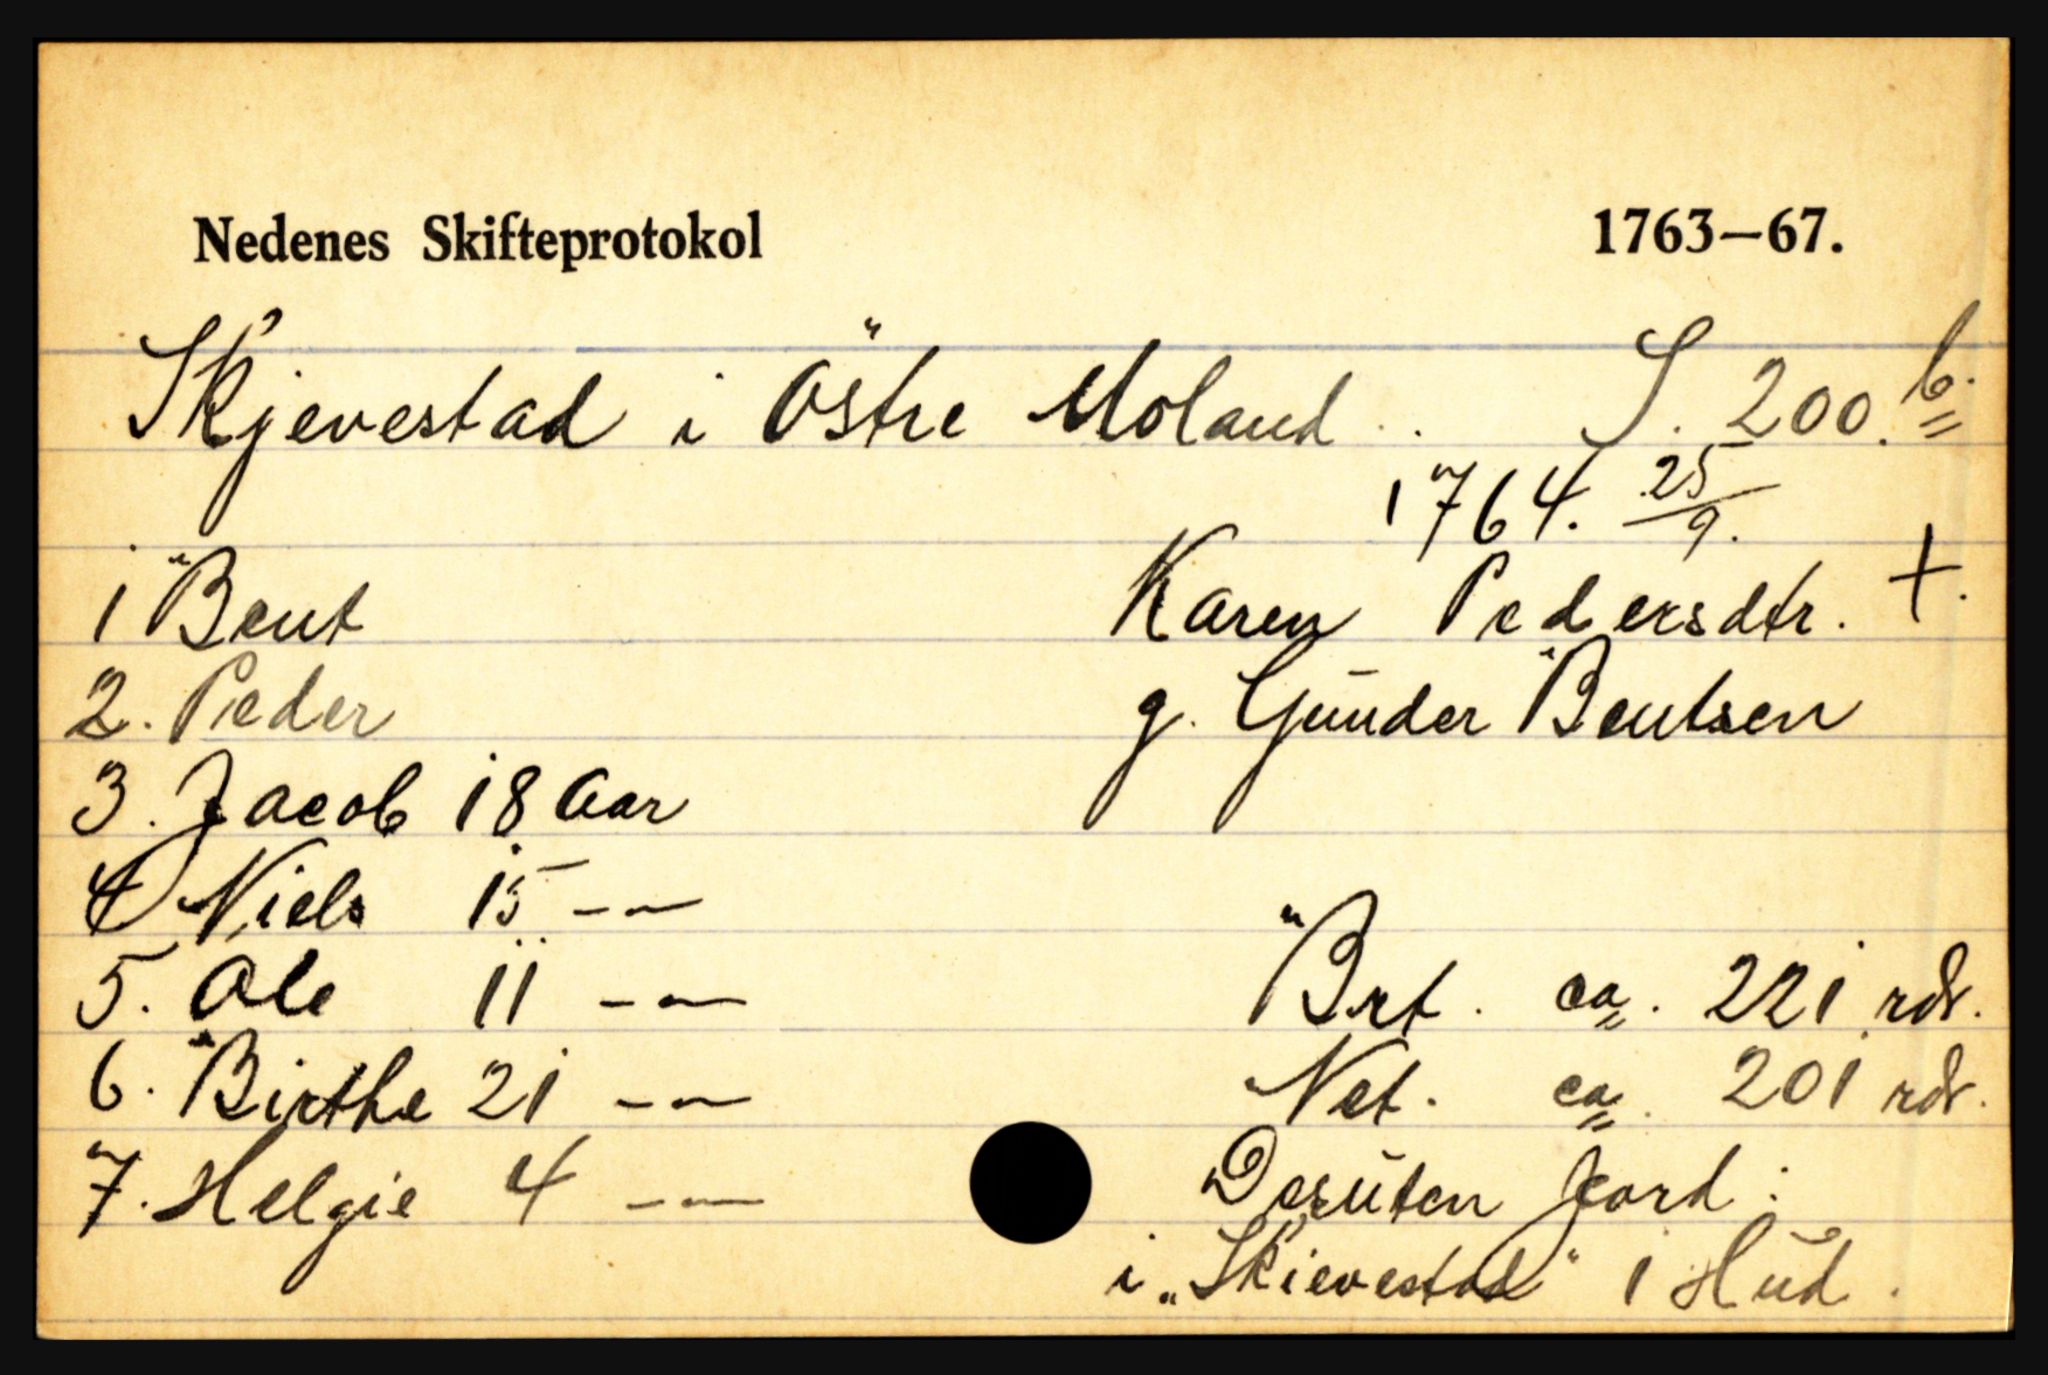 Nedenes Skifteprotokol 1763–67.
Skjevestad i Östre Moland . . S. 200. b.
1764. 25/9.
1 Bent
Karen Pedersdtr. +.
2. Peder
g. Gunder Bentsen
3. Jacob 18 Aar
4 Niels 15 –"–
5. Ole 11 –"–
Brt. ca. 221 rdr.
6. Birthe 21 –"–
Net. ca. 201 rdr.
7. Helgie 4 –"–
Desuten Jord :
i „Skievestad" 1 Hud.